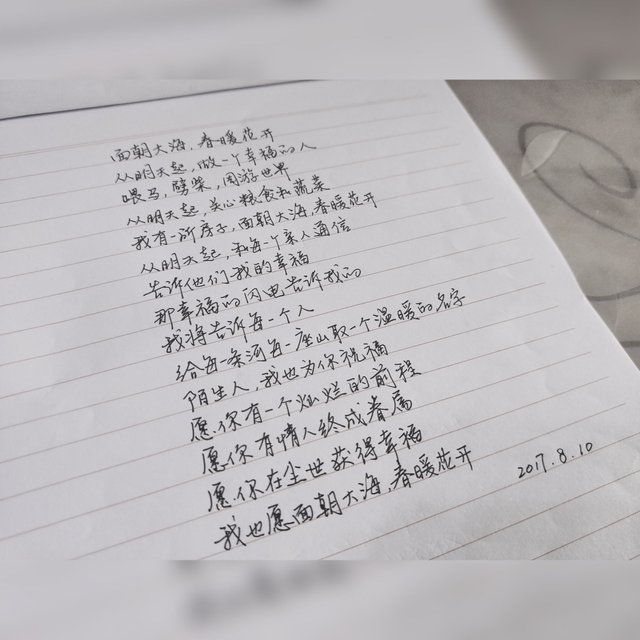 面朝大海，春暖花开
从明天起，做一个幸福的人
喂马，劈柴，周游世界
从明天起，关心粮食和蔬菜
我有一所房子，面朝大海，春暖花开
从明天起，和每一个亲人通信
告诉他们我的幸福
那幸福的闪电告诉我的
我将告诉每一个人
给每一条河每一座山取一个温暖的名字
陌生人，我也为你祝福
愿你有一个灿烂的前程
愿你有情人终成眷属
愿你在尘世获得幸福
我也愿面朝大海，春暖花开
2017.8.10